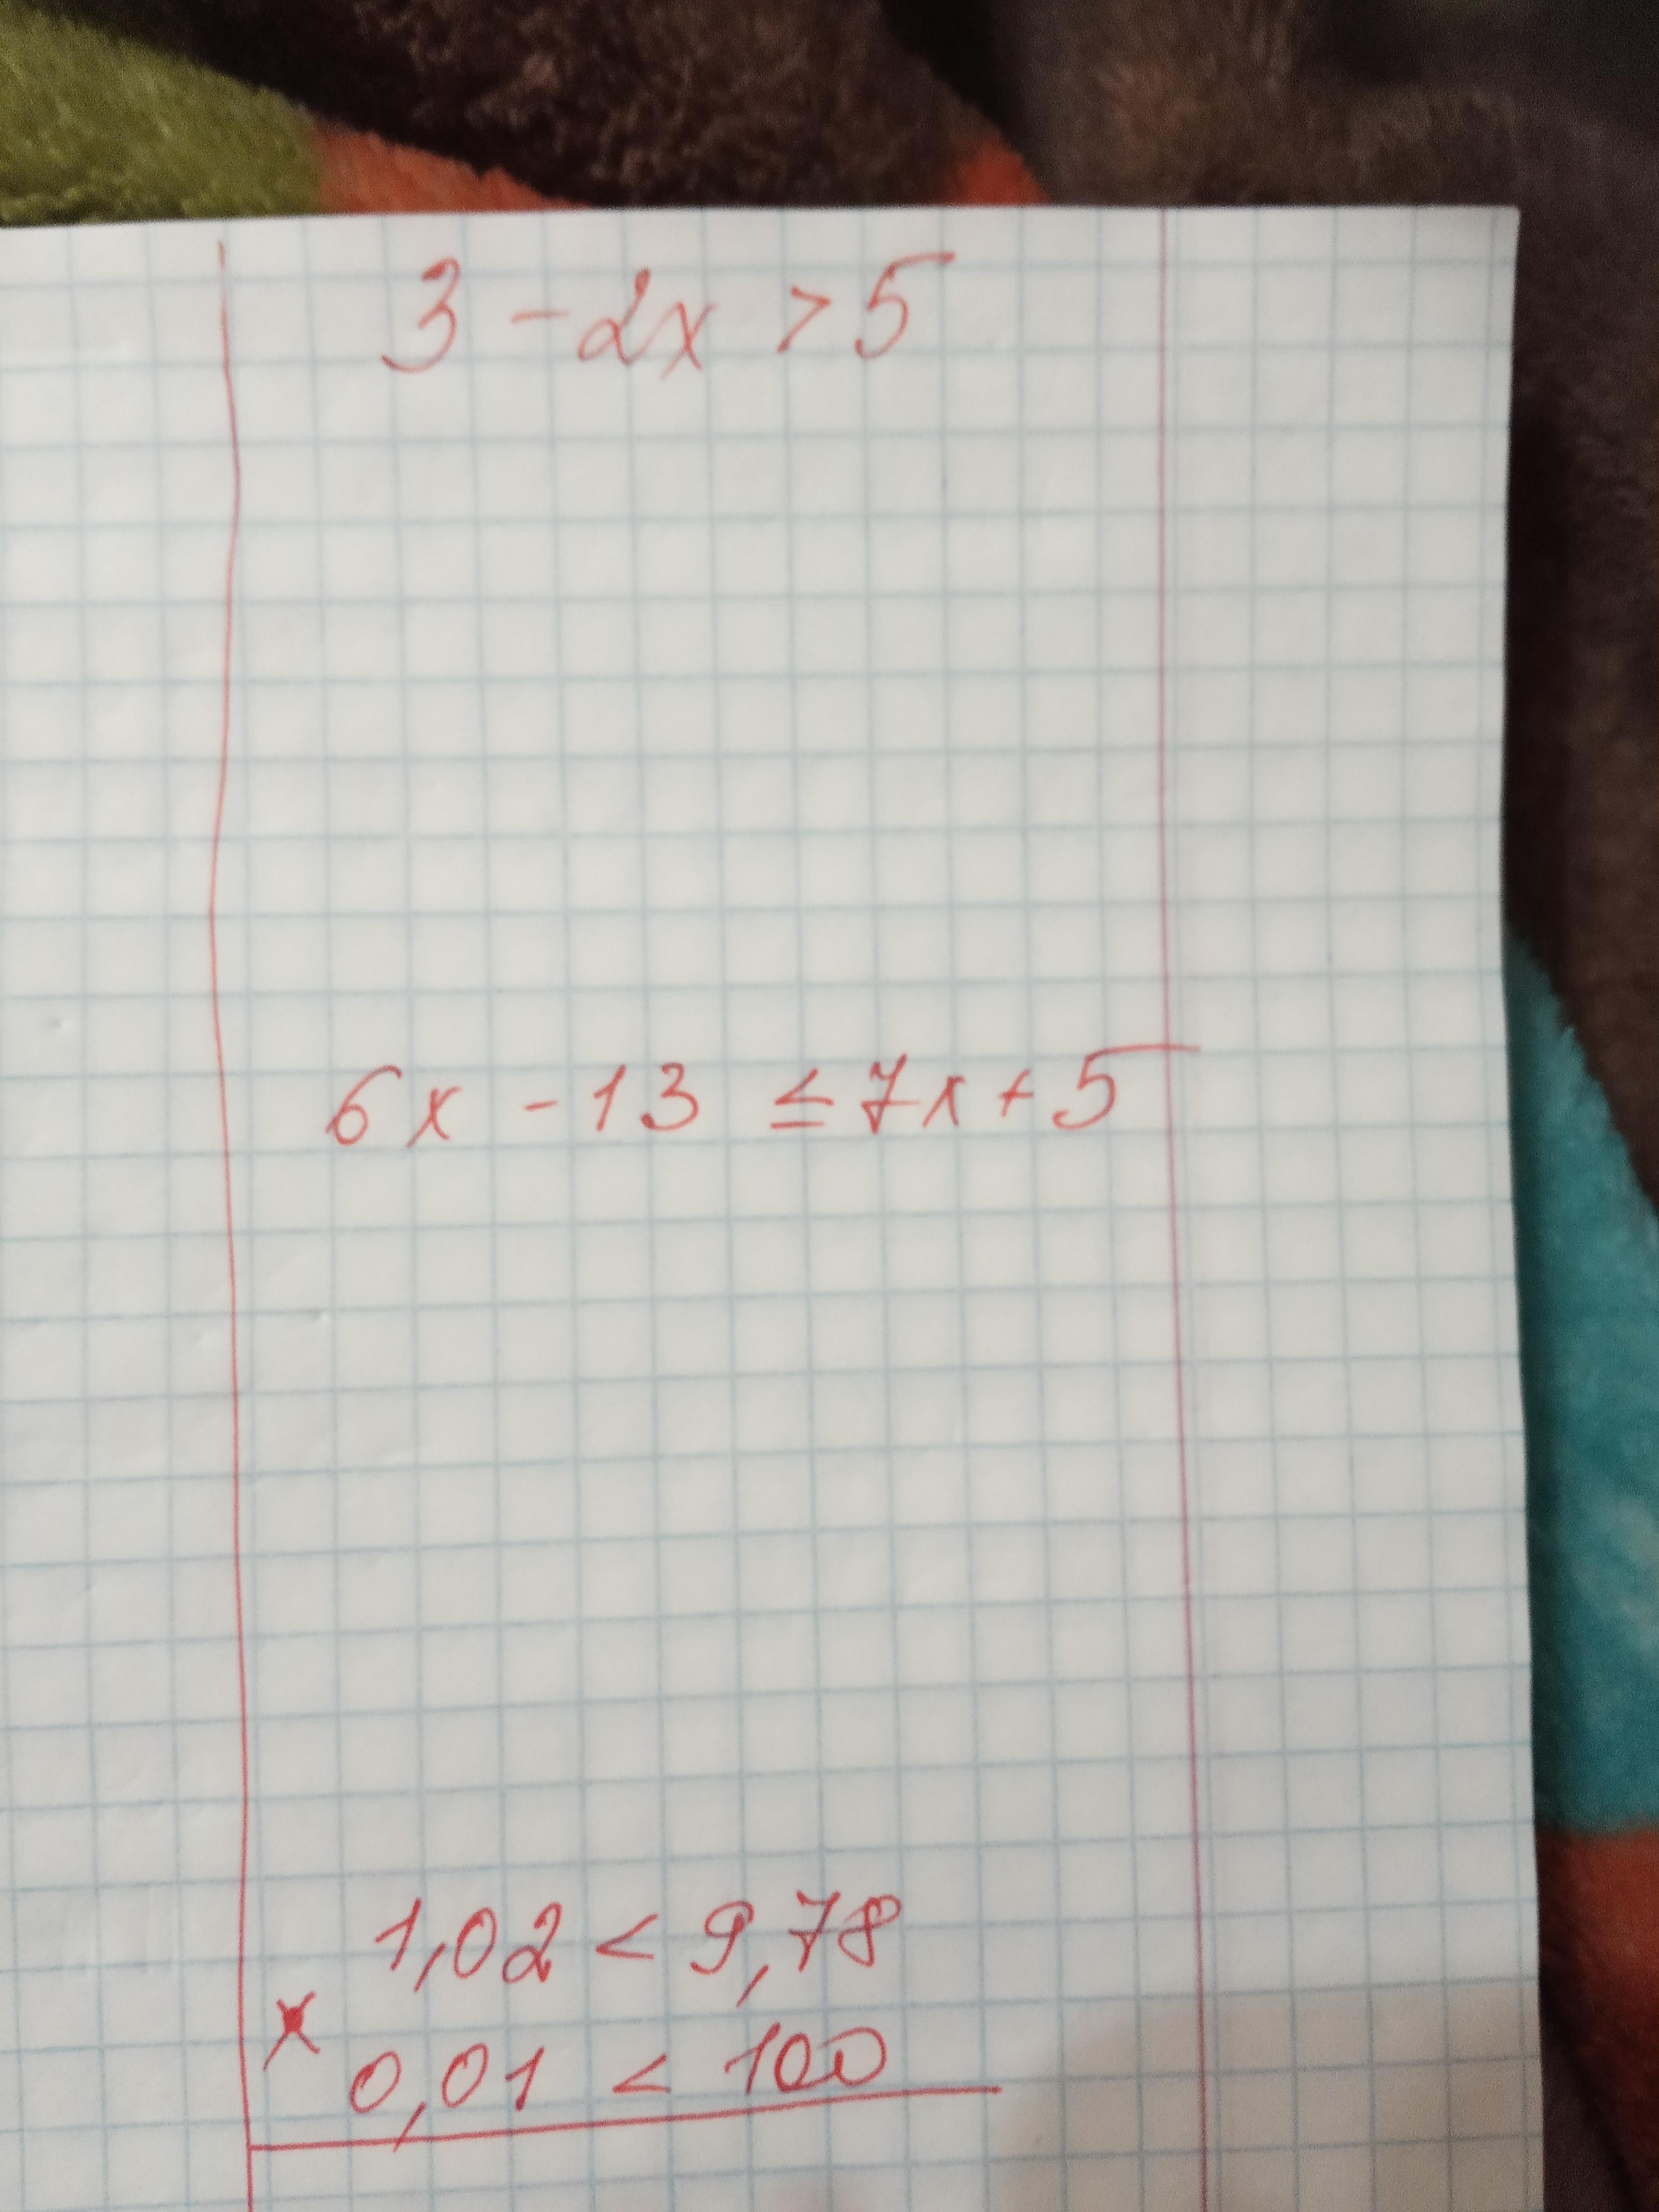 3 - 2x > 5
6x - 13 ≤ 7x + 5
1,02 < 9,78
×
0,01 < 100